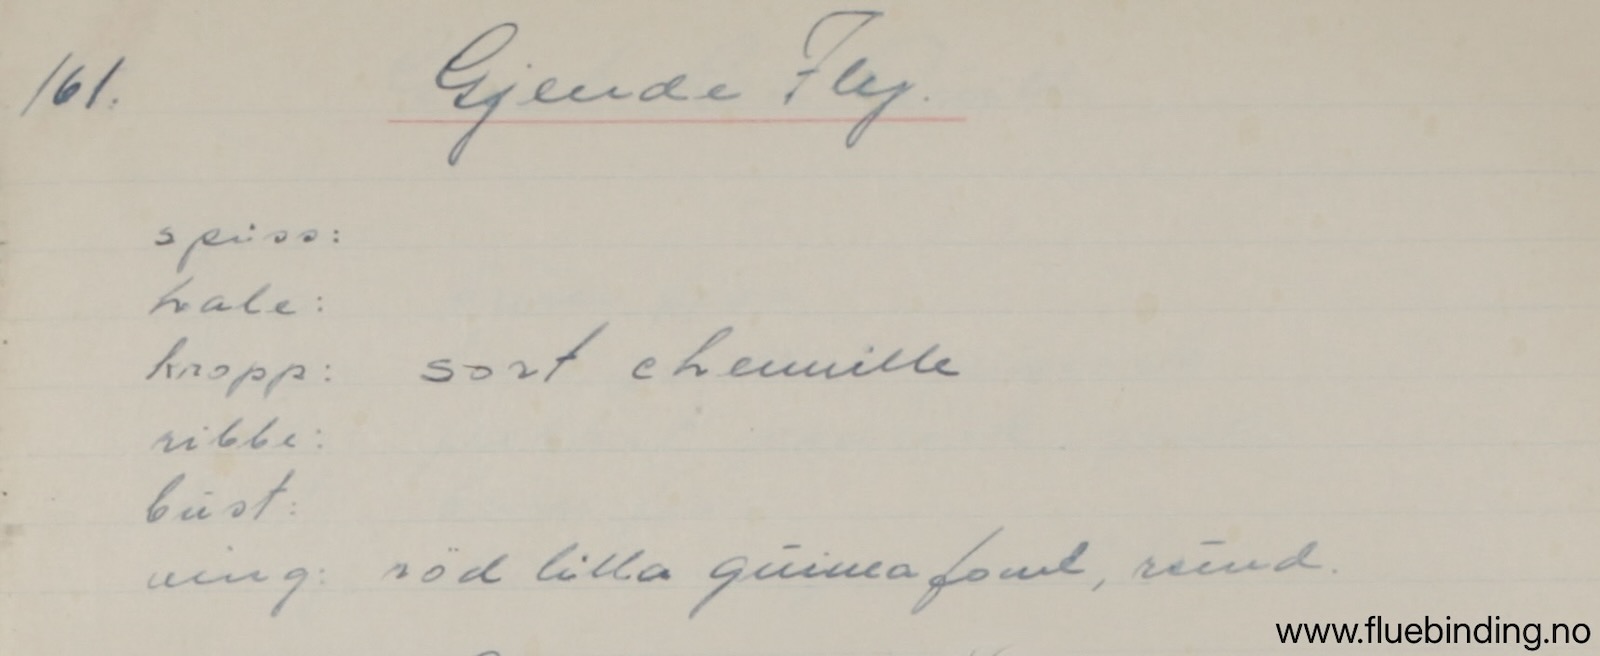 161. Gjende Fly.
spiss:
hale:
kropp: sort chenille
ribbe:
bust:
ving: röd lilla guinea fowl, rund.
www.fluebinding.no